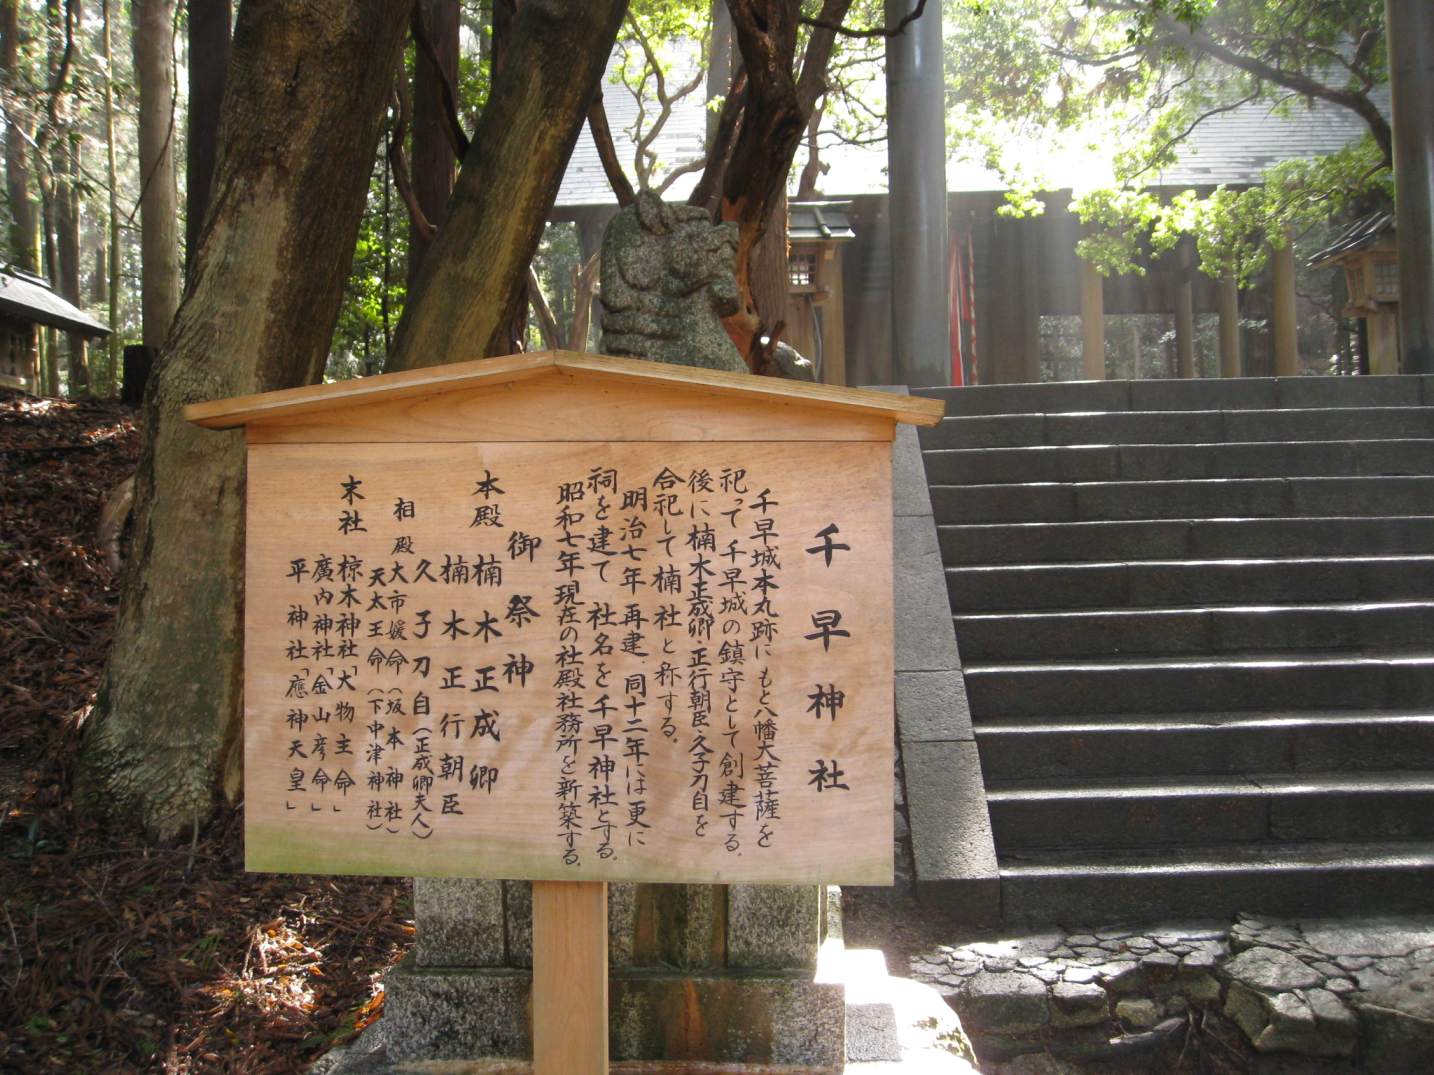 千早神社
千早城本丸跡にもと八幡大菩薩を
祀って千早城の鎮守として創建する.
後に楠木正成卿・正行朝臣・久子刀自を
合祀して楠社と称する.
明治七年再建.同十二年には更に
祠を建て社名を千早神社とする.
昭和七年現在の社殿社務所を新築する.
御祭神
本殿 楠木正成卿
楠木正行朝臣
久子刀自(正成卿夫人)
相殿 大市媛命(坂本神社)
天太玉命(下中津神社)
末社 椋木神社「大物主命」
廣内神社「金山彦命」
平神社「應神天皇」